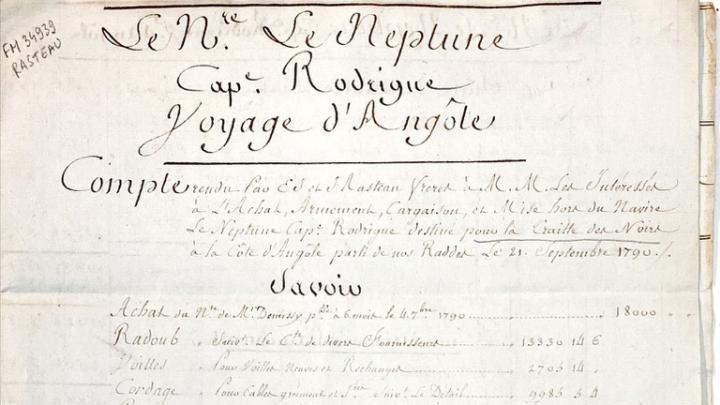 FM 34939
RASTEAU
Le N.re Le Neptune
Cap.e Rodrigue
Voyage d'Angôle
Compte rendu Par E J et J Rasteau Freres à M.M. Les Intéressés
à L'Achat, Armement, Cargaison, et Mise hors du Navire
Le Neptune Cap.e Rodrigue destiné pour la traitte des Noirs
à la Côte d'Angôle parti de nos Raddes Le 21. Septembre 1790./.
Savoir
Achat du N.re de M.r Demissy à 6 mois le 4. 7.bre 1790 18000
Radoub Suiv.t Le C.te de divers fournisseurs 13330 14 6
Voilles Pour Voilles Neuves et Rechanges 2705 14
Cordage Pour Cables grément et Suiv.t Le Détail 9985 5 4